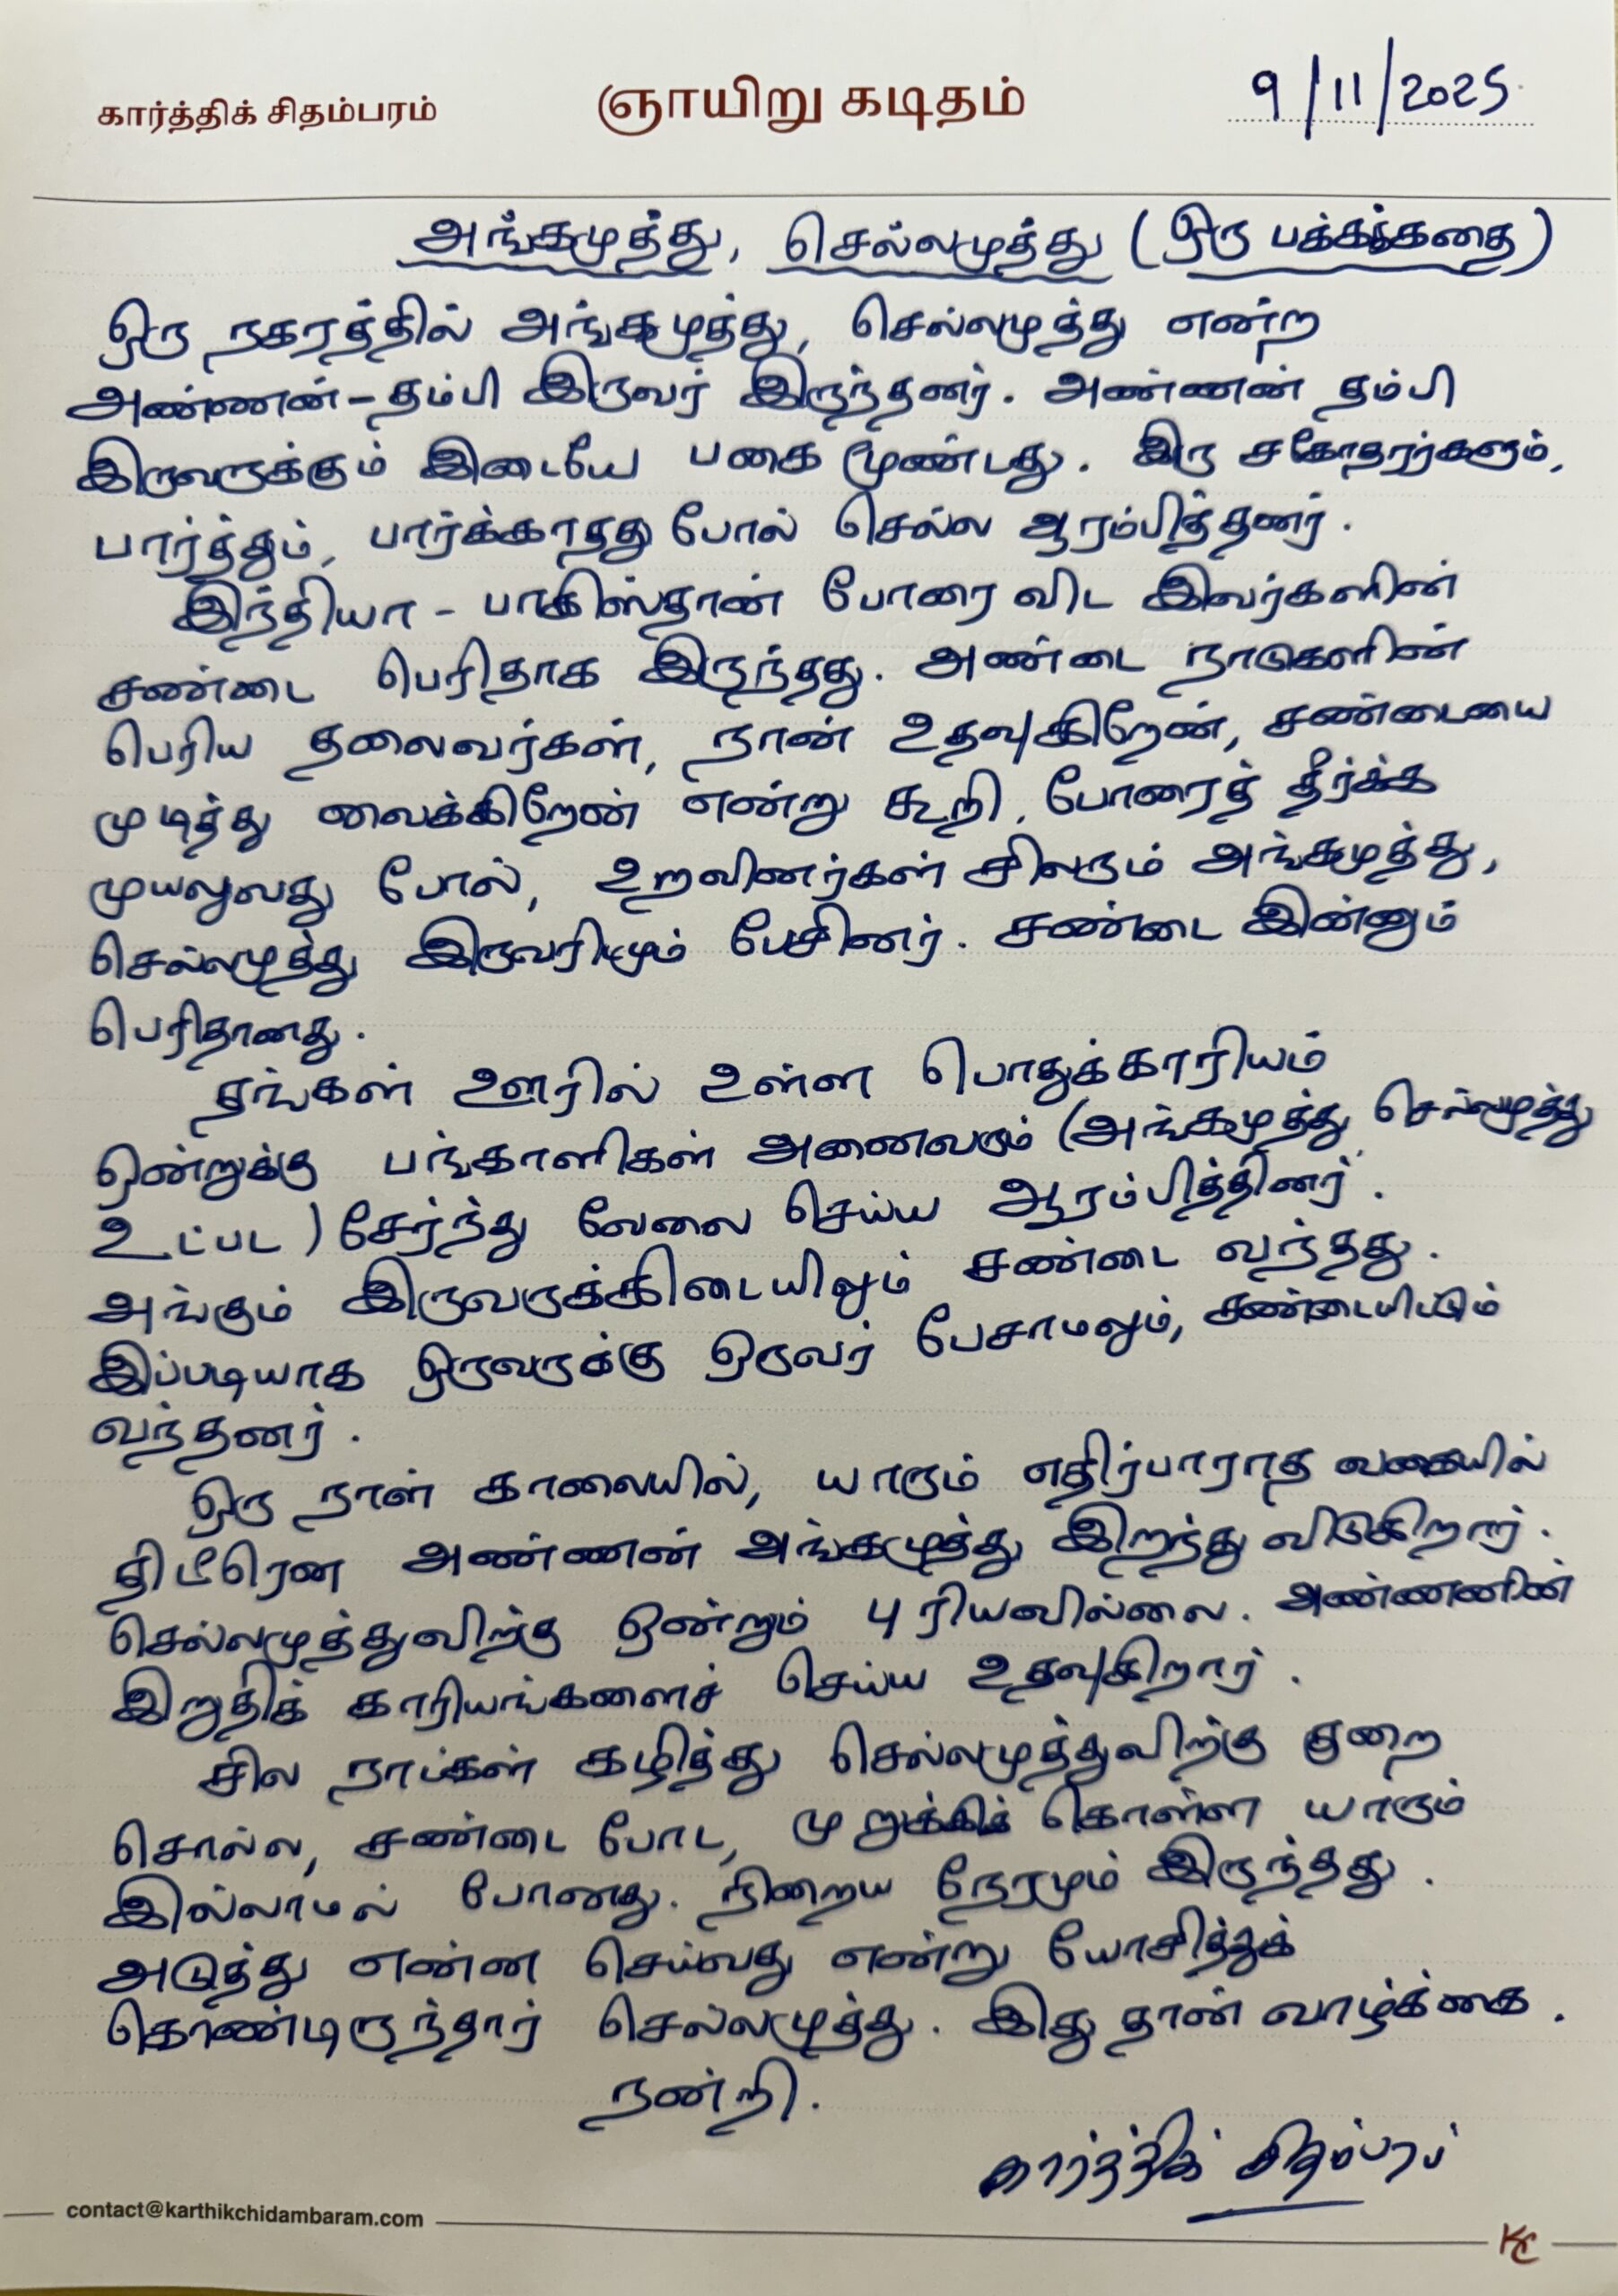 கார்த்திக் சிதம்பரம்
ஞாயிறு கடிதம்
9/11/2025
அங்கமுத்து, செல்லமுத்து (ஒரு பக்கக்கதை)
ஒரு நகரத்தில் அங்கமுத்து, செல்லமுத்து என்ற
அண்ணன்-தம்பி இருவர் இருந்தனர். அண்ணன் தம்பி
இருவருக்கும் இடையே பகை மூண்டது. இரு சகோதரர்களும்,
பார்த்தும், பார்க்காதது போல் செல்ல ஆரம்பித்தனர்.
இந்தியா - பாகிஸ்தான் போரை விட இவர்களின்
சண்டை பெரிதாக இருந்தது. அண்டை நாடுகளின்
பெரிய தலைவர்கள், நான் உதவுகிறேன், சண்டையை
முடித்து வைக்கிறேன் என்று கூறி, போரைத் தீர்க்க
முயலுவது போல், உறவினர்கள் சிலரும் அங்கமுத்து,
செல்லமுத்து இருவரிடமும் பேசினர். சண்டை இன்னும்
பெரிதானது.
தங்கள் ஊரில் உள்ள பொதுக்காரியம்
ஒன்றுக்கு பங்காளிகள் அனைவரும் (அங்கமுத்து, செல்லமுத்து
உட்பட) சேர்ந்து வேலை செய்ய ஆரம்பித்தினர்.
அங்கும் இருவருக்கிடையிலும் சண்டை வந்தது.
இப்படியாக ஒருவருக்கு ஒருவர் பேசாமலும், சண்டையிட்டும்
வந்தனர்.
ஒரு நாள் காலையில், யாரும் எதிர்பாராத வகையில்
திடீரென அண்ணன் அங்கமுத்து இறந்து விடுகிறார்.
செல்லமுத்துவிற்கு ஒன்றும் புரியவில்லை. அண்ணனின்
இறுதிக் காரியங்களைச் செய்ய உதவுகிறார்.
சில நாட்கள் கழித்து செல்லமுத்துவிற்கு குறை
சொல்ல, சண்டை போட, முறுக்கிக் கொள்ள யாரும்
இல்லாமல் போனது. நிறைய நேரமும் இருந்தது.
அடுத்து என்ன செய்வது என்று யோசித்துக்
கொண்டிருந்தார் செல்லமுத்து. இது தான் வாழ்க்கை.
நன்றி.
கார்த்திக் சிதம்பரம்
contact@karthikchidambaram.com
KC